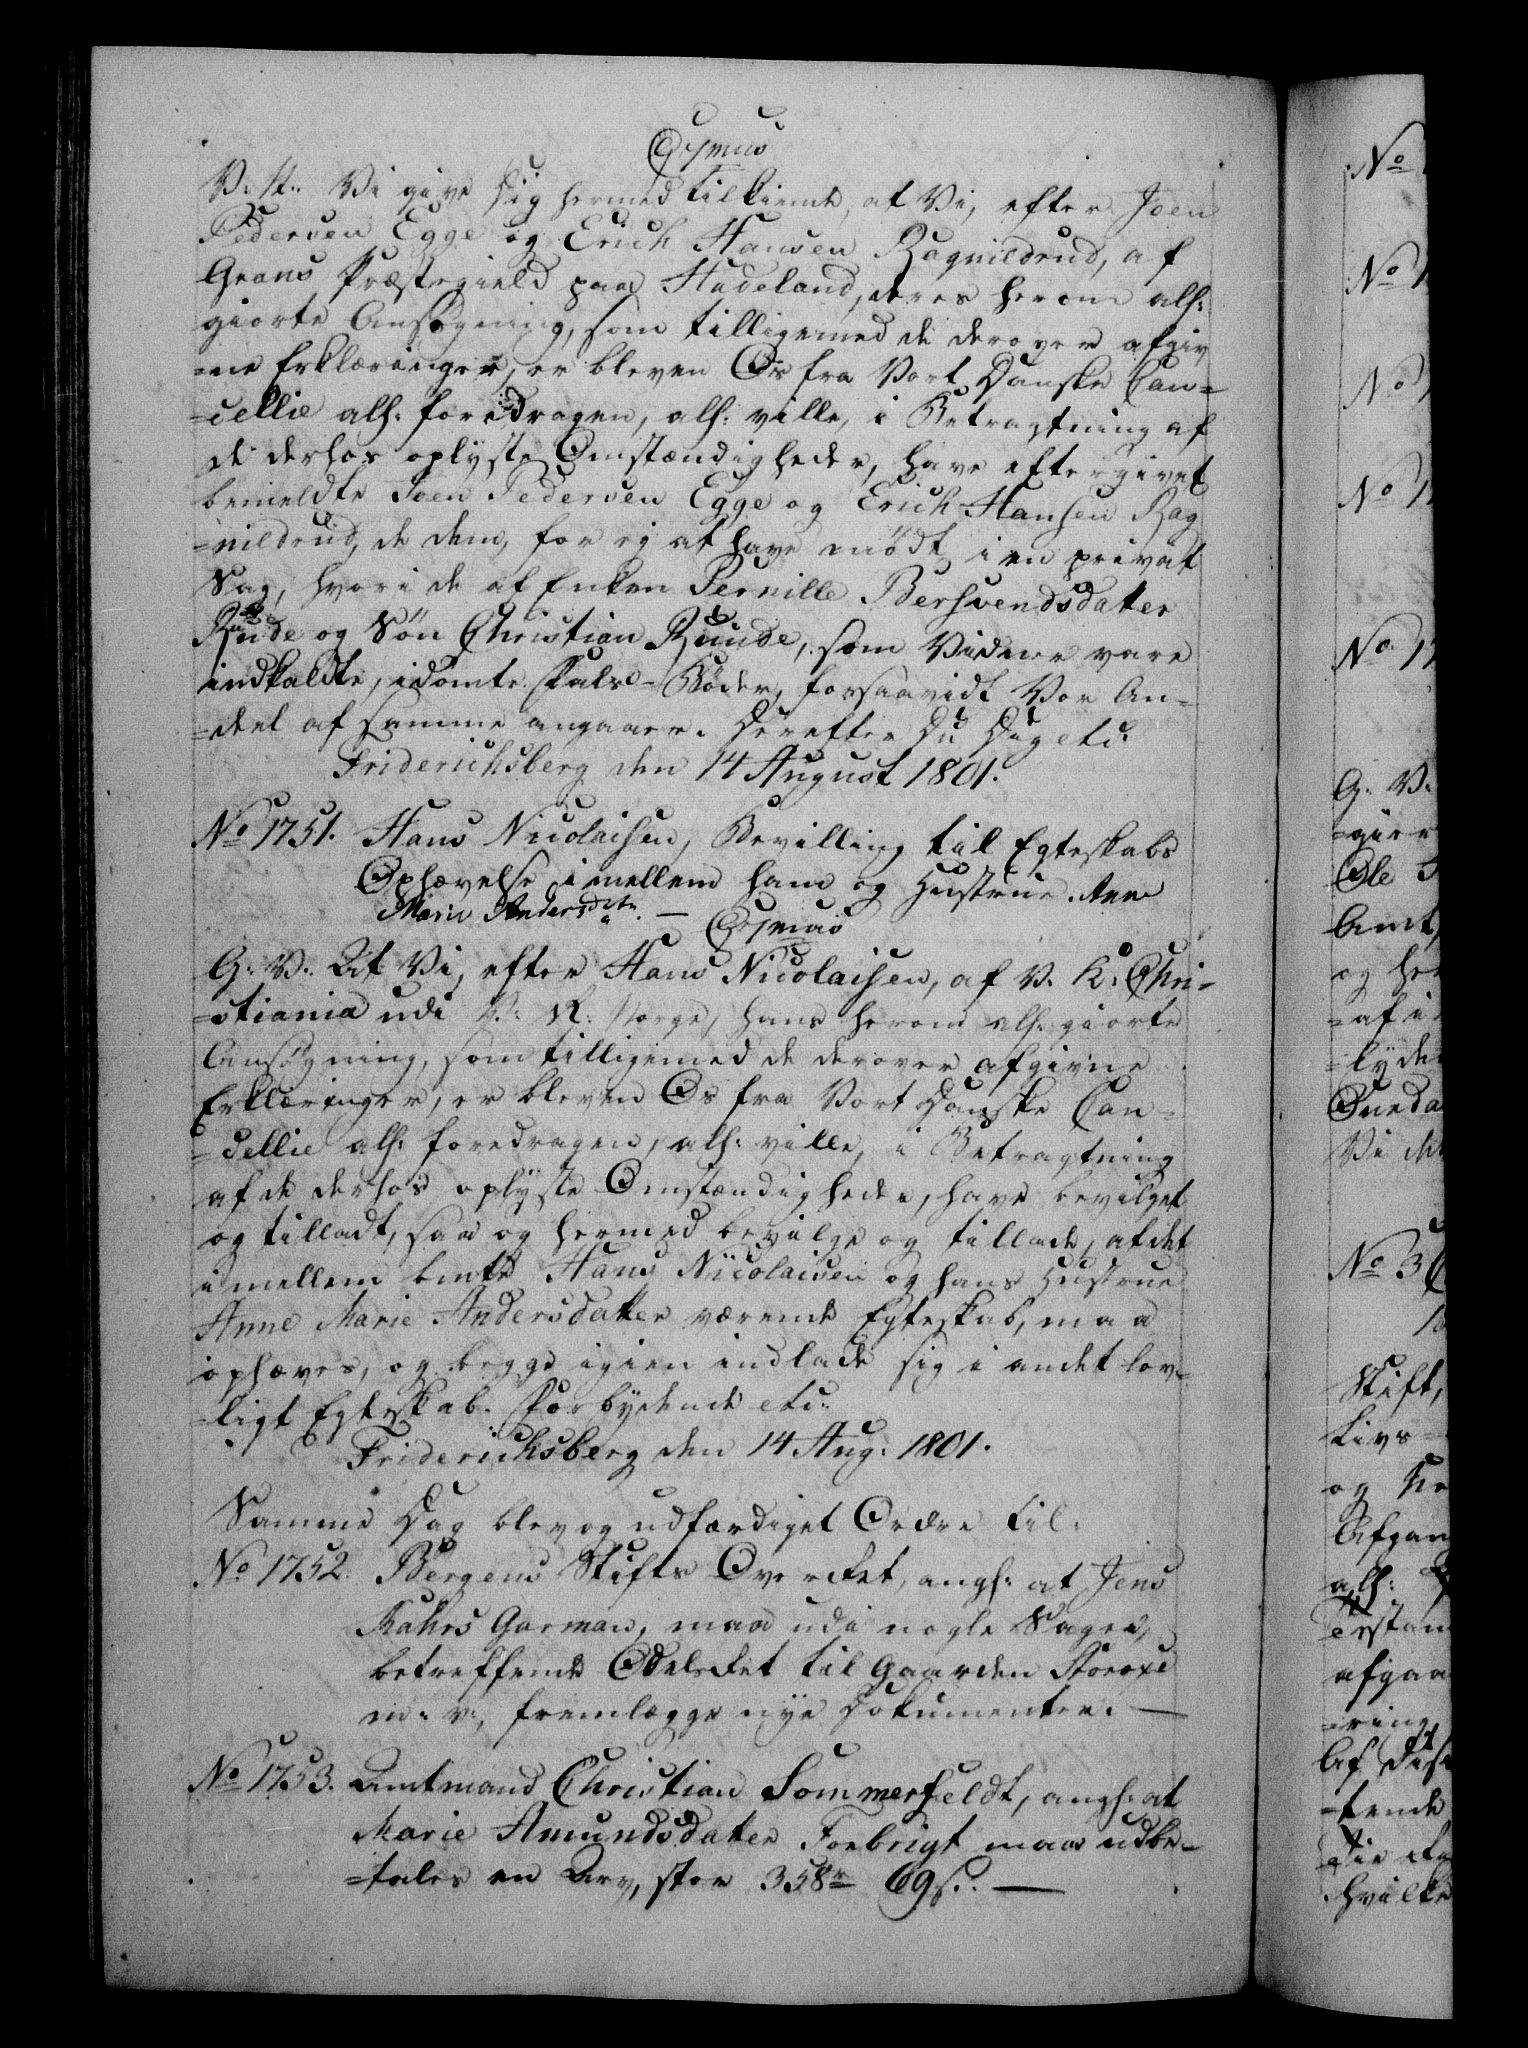 C 7mus
V: A: Vi give Dig hermed tilkiende, at Vi, efter Joen
Pedersen Egge og Erich Hansen Ragnildrud, af
Grans Præstegield paa Hadeland, deres herom alh:
giorte Ansøgning, som tilligemed de derover afgiv
=ne Erklæringer, er bleven Os fra Vort Danske Can=
=cellie alh: foredragen, alh: ville, i Betragtning af
de derhos oplyste Omstændigheder, have eftergivet
bemeldte Joen Pedersen Egge og Erich Hansen Rag
=nildrud, de dem, for ej at have mødt i en privat
Sag, hvori de af Enken Pernille Bersvendsdatter
Runde og Søn Christian Runde, som Vidner vare
indkaldte, idømte Falds-Bøder, forsaavidt Vor An=
=deel af samme angaaer. Derefter Du Dig etc:
Friderichsberg den 14 August 1801.
No 1751. Hans Nicolaisen, Bevilling til Egteskabs
Ophævelse imellem ham og Hustrue Anne
Marie Andersdtr. —
C 7mus
G: V: At Vi, efter Hans Nicolaisen, af V. K: Chri=
=stiania udi V: R: Norge, hans herom alh: giorte
Ansøgning, som tilligemed de derover afgivne
Erklæringer, er bleven Os fra Vort Danske Can=
=cellie alh: foredragen, alh: ville, i Betragtning
af de derhos oplyste Omstændigheder, have bevilget
og tilladt, saa og hermed bevilge og tillade, at det
imellem bemte Hans Nicolaisen og hans Hustrue
Anne Marie Andersdatter værende Egteskab, maa
ophæves, og begge igien indlade sig i andet lov=
=ligt Egteskab. Forbydende etc:
Friderichsberg den 14 Aug: 1801.
Samme Dag blev og udfærdiget Ordre til:
No 1752. Bergens Stifts Overret, angh: at Jens
Kahrs Garman, maa udi nogle Sager,
betreffende Odelsret til Gaarden Storoxe
m: v:, fremlægge nye Dokumenter. —
No 1753. Amtmand Christian Sommerfeldt, angh: at
Marie Amundsdatter Foebrigt maa udbe=
=tales en Arv, stor 358 r 69 s. —
No
No 1
No
No 1
No 17
G: V:
=gier
Ole
Amt,
og her
=af i
=lyde
Vi
No 3
Stift,
Livs=
og
Afgan
alh:
afgaa
=ring,
Af
=tende
hvilke